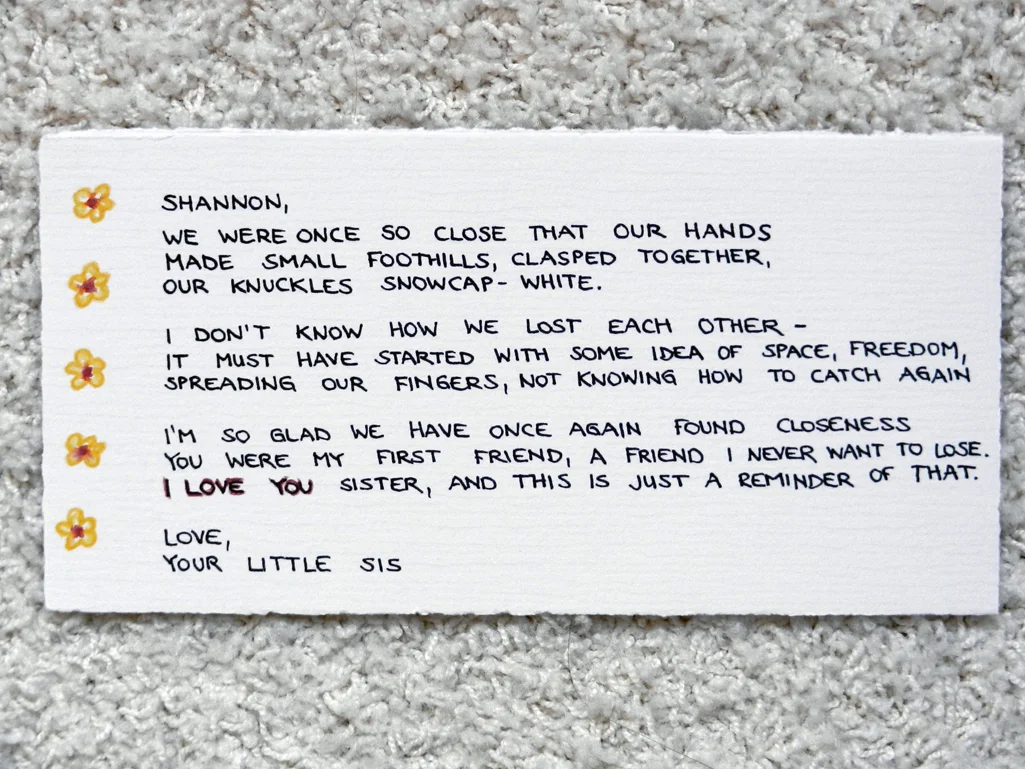 SHANNON,
WE WERE ONCE SO CLOSE THAT OUR HANDS
MADE SMALL FOOTHILLS, CLASPED TOGETHER,
OUR KNUCKLES SNOWCAP-WHITE.
I DON'T KNOW HOW WE LOST EACH OTHER -
IT MUST HAVE STARTED WITH SOME IDEA OF SPACE, FREEDOM,
SPREADING OUR FINGERS, NOT KNOWING HOW TO CATCH AGAIN
I'M SO GLAD WE HAVE ONCE AGAIN FOUND CLOSENESS
YOU WERE MY FIRST FRIEND, A FRIEND I NEVER WANT TO LOSE.
I LOVE YOU SISTER, AND THIS IS JUST A REMINDER OF THAT.
LOVE,
YOUR LITTLE SIS